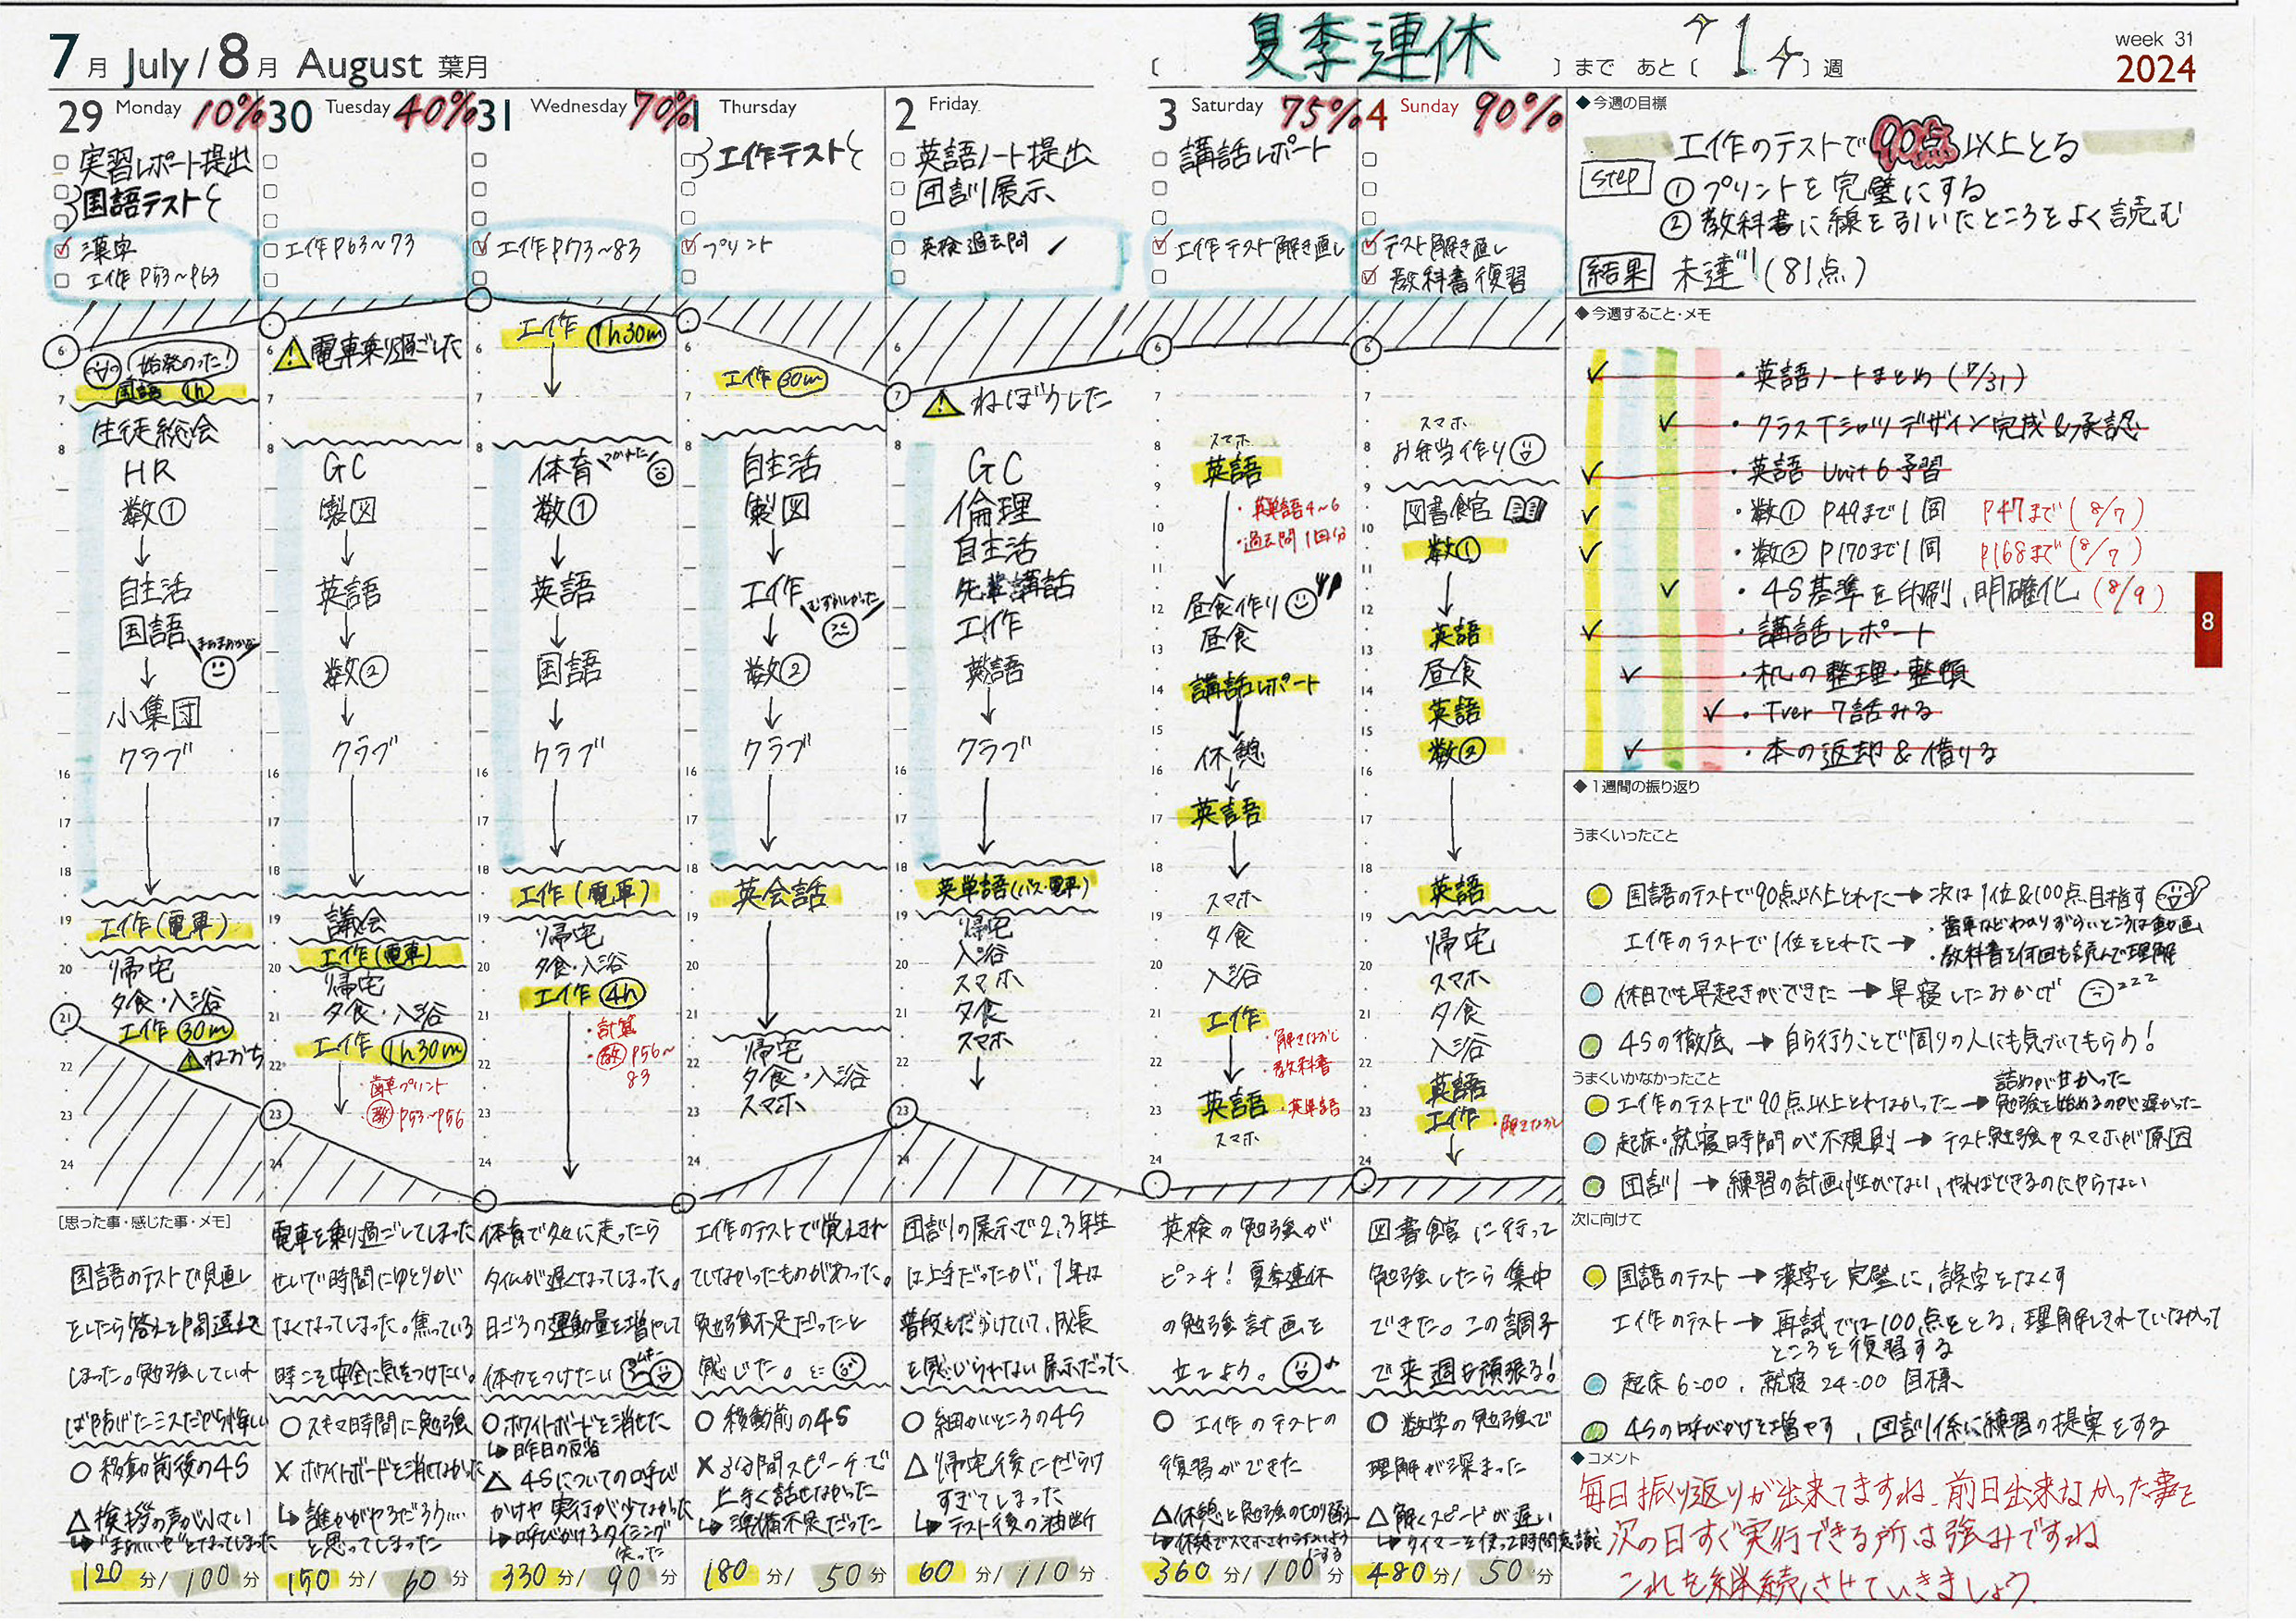 7月 July / 8月 August 葉月
〔 夏季連休 〕まで あと〔 1 〕週
week 31
2024
29 Monday 10%
実習レポート提出
国語テスト
漢字
工作 P53~P63
6
始発のった!
国語 1h
7
生徒総会
8
HR
数①
自生活
国語
小集団
クラブ
16
17
18
19
工作(電車)
20
帰宅
夕食・入浴
21
工作 30m
ねおち
22
23
24
30 Tuesday 40%
工作P63~73
6
電車乗り過ごした
7
8
GC
製図
英語
数②
クラブ
16
17
18
19
議会
工作(電車)
20
帰宅
夕食・入浴
21
工作 1h30m
22
歯車プリント
教 P53~P56
23
24
31 Wednesday 70%
工作P73~83
6
工作 1h30m
7
8
体育 つかれた
数①
英語
国語
クラブ
16
17
18
工作(電車)
19
帰宅
20
夕食・入浴
工作 4h
21
・計算
・教 P56~83
22
23
24
1 Thursday
工作テスト
プリント
6
工作 30m
7
8
自生活
製図
工作 むずかしかった
数②
クラブ
16
17
18
英会話
19
20
21
帰宅
22
夕食・入浴
スマホ
23
24
2 Friday
英語ノート提出
団訓展示
英検過去問
6
7
ねぼうした
8
GC
倫理
自生活
先輩講話
工作
英語
クラブ
16
17
18
英単語(バス・電車)
19
帰宅
入浴
20
スマホ
夕食
21
スマホ
22
23
24
3 Saturday 75%
講話レポート
工作テスト解き直し
6
7
スマホ
8
英語
9
・英単語4~6
10
・過去問1回分
11
12
昼食作り
昼食
13
14
講話レポート
15
休憩
16
17
英語
18
スマホ
19
夕食
20
入浴
21
工作
・解きなおし
22
・教科書
23
英語 ・英単語
スマホ
24
4 Sunday 90%
テスト解き直し
教科書復習
6
7
スマホ
8
お弁当作り
9
図書館
10
数①
11
12
英語
13
昼食
14
英語
15
数②
16
17
18
英語
19
帰宅
20
スマホ
夕食
21
入浴
22
英語
23
工作 ・解きなおし
24
[思った事・感じた事・メモ]
国語のテストで見直し
をしたら答えを間違えて
しまった。勉強していれ
ば防げたミスだから悔しい
○ 移動前後の4S
△ 挨拶の声が小さい
↳"まぁいいや"となってしまった
120分/100分
電車を乗り過ごしてしまった
せいで時間にゆとりが
なくなってしまった。焦っている
時こそ安全に気をつけたい。
○ スキマ時間に勉強
× ホワイトボードを消せなかった
↳ 誰かがやるだろう…
と思ってしまった
150分/60分
体育で久々に走ったら
タイムが遅くなってしまった。
日ごろの運動量を増やして
体力をつけたい
○ ホワイトボードを消せた
↳ 昨日の反省
△ 4Sについての呼び
かけや実行が少なかった
↳ 呼びかけるタイミング
失った
330分/90分
工作のテストで覚えきれ
ていなかったものがあった。
勉強不足だったと
感じた。
○ 移動前の4S
× 3分間スピーチで
上手く話せなかった
↳ 準備不足だった
180分/50分
団訓の展示で2,3年生
は上手だったが、1年は
普段もだらけていて、成長
を感じられない展示だった
○ 細かいところの4S
△ 帰宅後にだらけ
すぎてしまった
↳ テスト後の油断
60分/110分
英検の勉強が
ピンチ! 夏季連休
の勉強計画を
立てよう。
○ 工作のテストの
復習ができた
△ 休憩と勉強の切り替え
↳ 休憩でスマホさわらないようにする
360分/100分
図書館に行って
勉強したら集中
できた。この調子
で来週も頑張る!
○ 数学の勉強で
理解が深まった
△ 解くスピードが遅い
↳ タイマーを使って時間意識
480分/50分
◆今週の目標
工作のテストで90点以上とる
step
① プリントを完璧にする
② 教科書に線を引いたところをよく読む
結果 未達!!(81点)
◆今週すること・メモ
・英語ノートまとめ(7/31)
・クラスTシャツデザイン完成&承認
・英語 Unit6予習
・数① P49まで1回 P47まで(8/7)
・数② P170まで1回 P168まで(8/7)
・4S基準を印刷、明確化(8/9)
・講話レポート
・机の整理・整頓
・Tver 7話みる
・本の返却&借りる
8
◆1週間の振り返り
うまくいったこと
国語のテストで90点以上とれた→次は1位&100点目指す
工作のテストで1位をとれた→
・歯車などわかりずらいところは動画
・教科書を何回も読んで理解
休日でも早起きができた→早寝したおかげ zzz
4Sの徹底→自ら行うことで周りの人にも気づいてもらう!
うまくいかなかったこと
工作のテストで90点以上とれなかった→
詰めが甘かった
勉強を始めるのが遅かった
起床・就寝時間が不規則→テスト勉強やスマホが原因
団訓→練習の計画性がない、やればできるのにやらない
次に向けて
国語のテスト→漢字を完璧に、誤字をなくす
工作のテスト→再試では100点をとる、理解しきれていなかった
ところを復習する
起床6:00、就寝24:00目標
4Sの呼びかけを増やす、団訓係に練習の提案をする
◆コメント
毎日振り返りが出来てますね。前日出来なかった事を
次の日すぐ実行できる所は強みですね
これを継続させていきましょう。